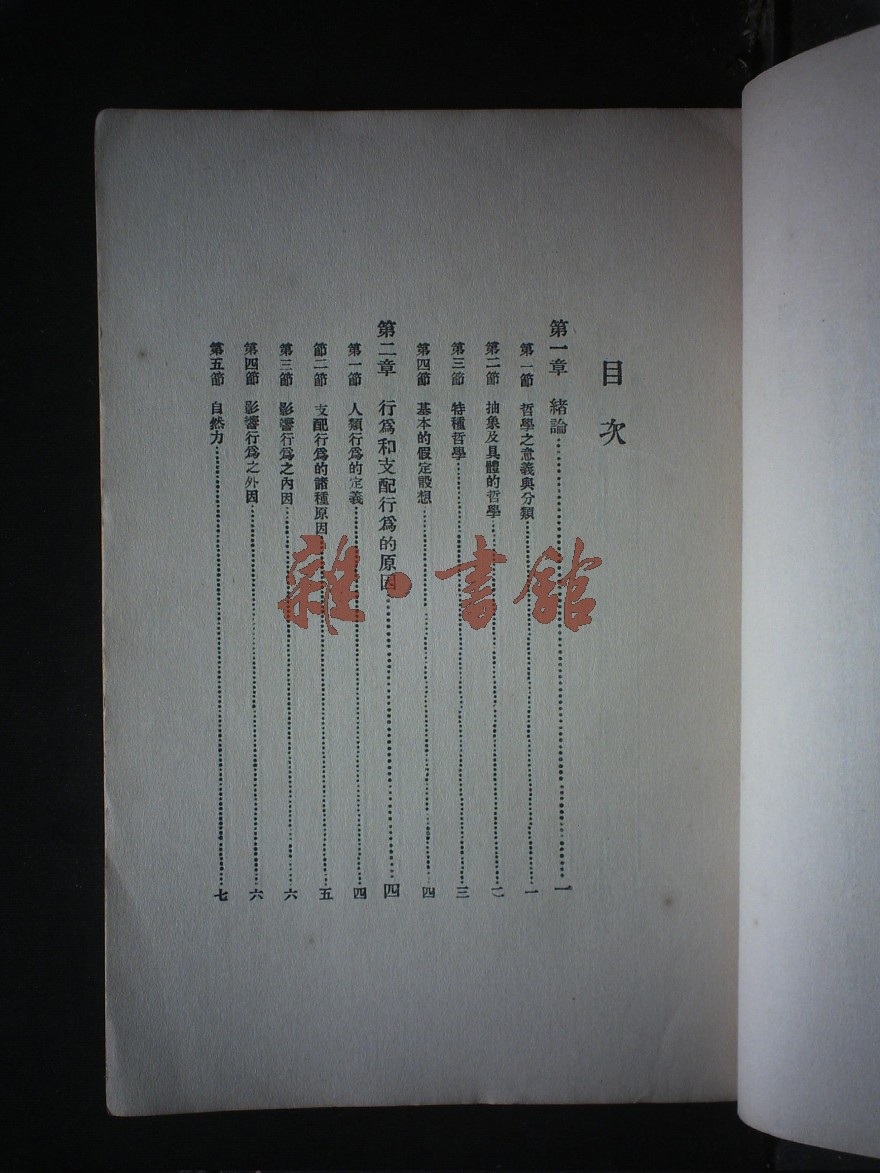 目次
第一章 緒論……一
第一節 哲學之意義與分類……一
第二節 抽象及具體的哲學……二
第三節 特種哲學……三
第四節 基本的假定設想……四
第二章 行爲和支配行爲的原因……四
第一節 人類行爲的定義……四
節二節 支配行爲的諸種原因……五
第三節 影響行爲之內因……六
第四節 影響行爲之外因……六
第五節 自然力……七
雜·書館